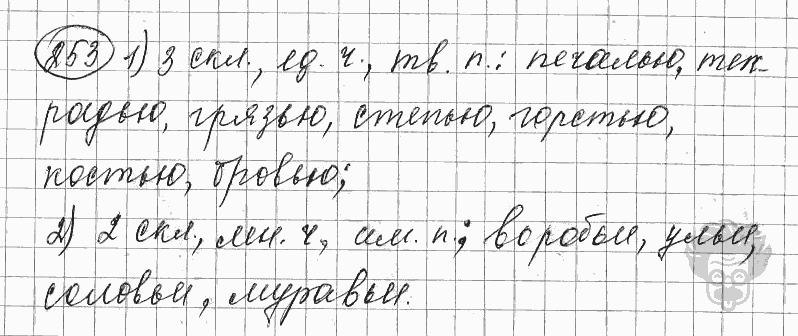 253 1) 3 скл., ед. ч., тв. п.: печалью, тет-
радью, грязью, степью, горстью,
костью, бровью;
2) 2 скл., мн. ч, им. п.; воробьи, ульи,
соловьи, муравьи.